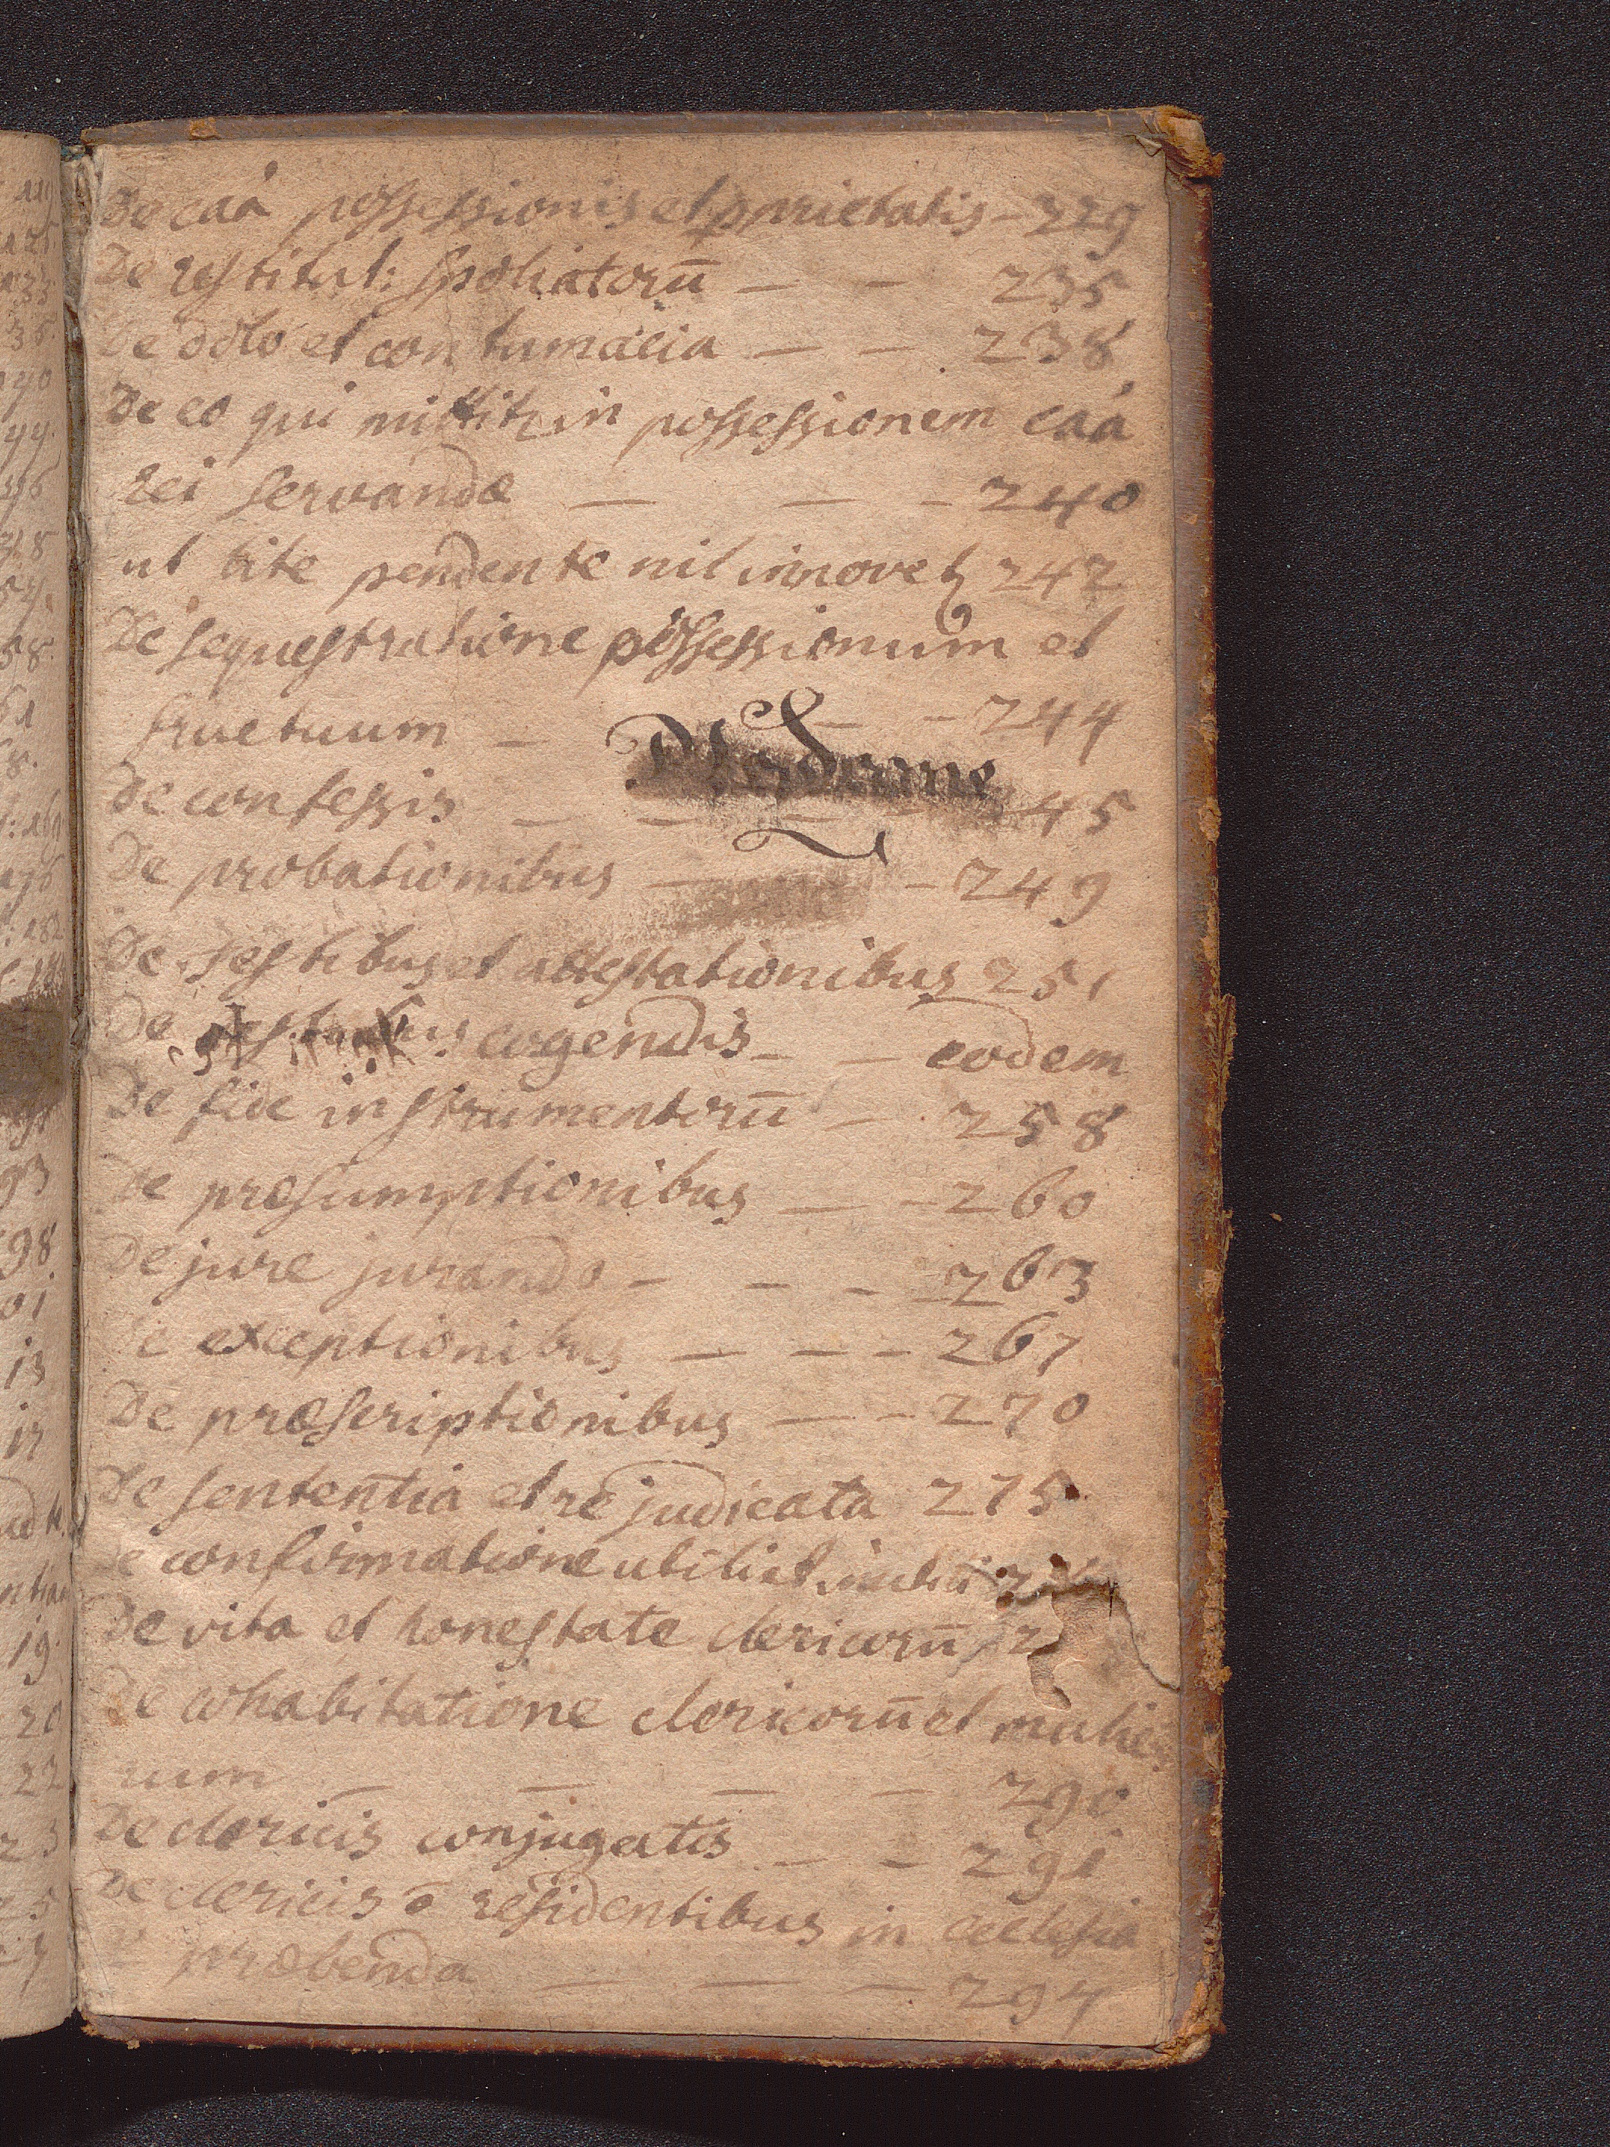 De caâ possessionis et pprietatis - 229
De restitut: spoliatorū — - 235
De dolo et contumacia — - 238
De eo qui mittit in possessionem caâ
rei servandæ — — - 240
ut lite pendente nil innovet 242
De sequestratione possessionum et
fructuum — — - 244
De confessis — — — - 45
De probationibus — - 249
De testibus et attestationibus 251
De testibus cogendis — — eodem
De fide instrumentorū — 258
De præsumptionibus — - 260
De jure jurando — — - 263
De exceptionibus — — - 267
De præscriptionibus — - 270
De sententia et re judicata 275
De confirmatione utili et
De vita et honestate clericorū 2
De cohabitatione clericorū et mulie
rum — — — — 290
De clericis conjugatis — - 291
De clericis ō residentibus in ecclesia
præbenda — — — 294